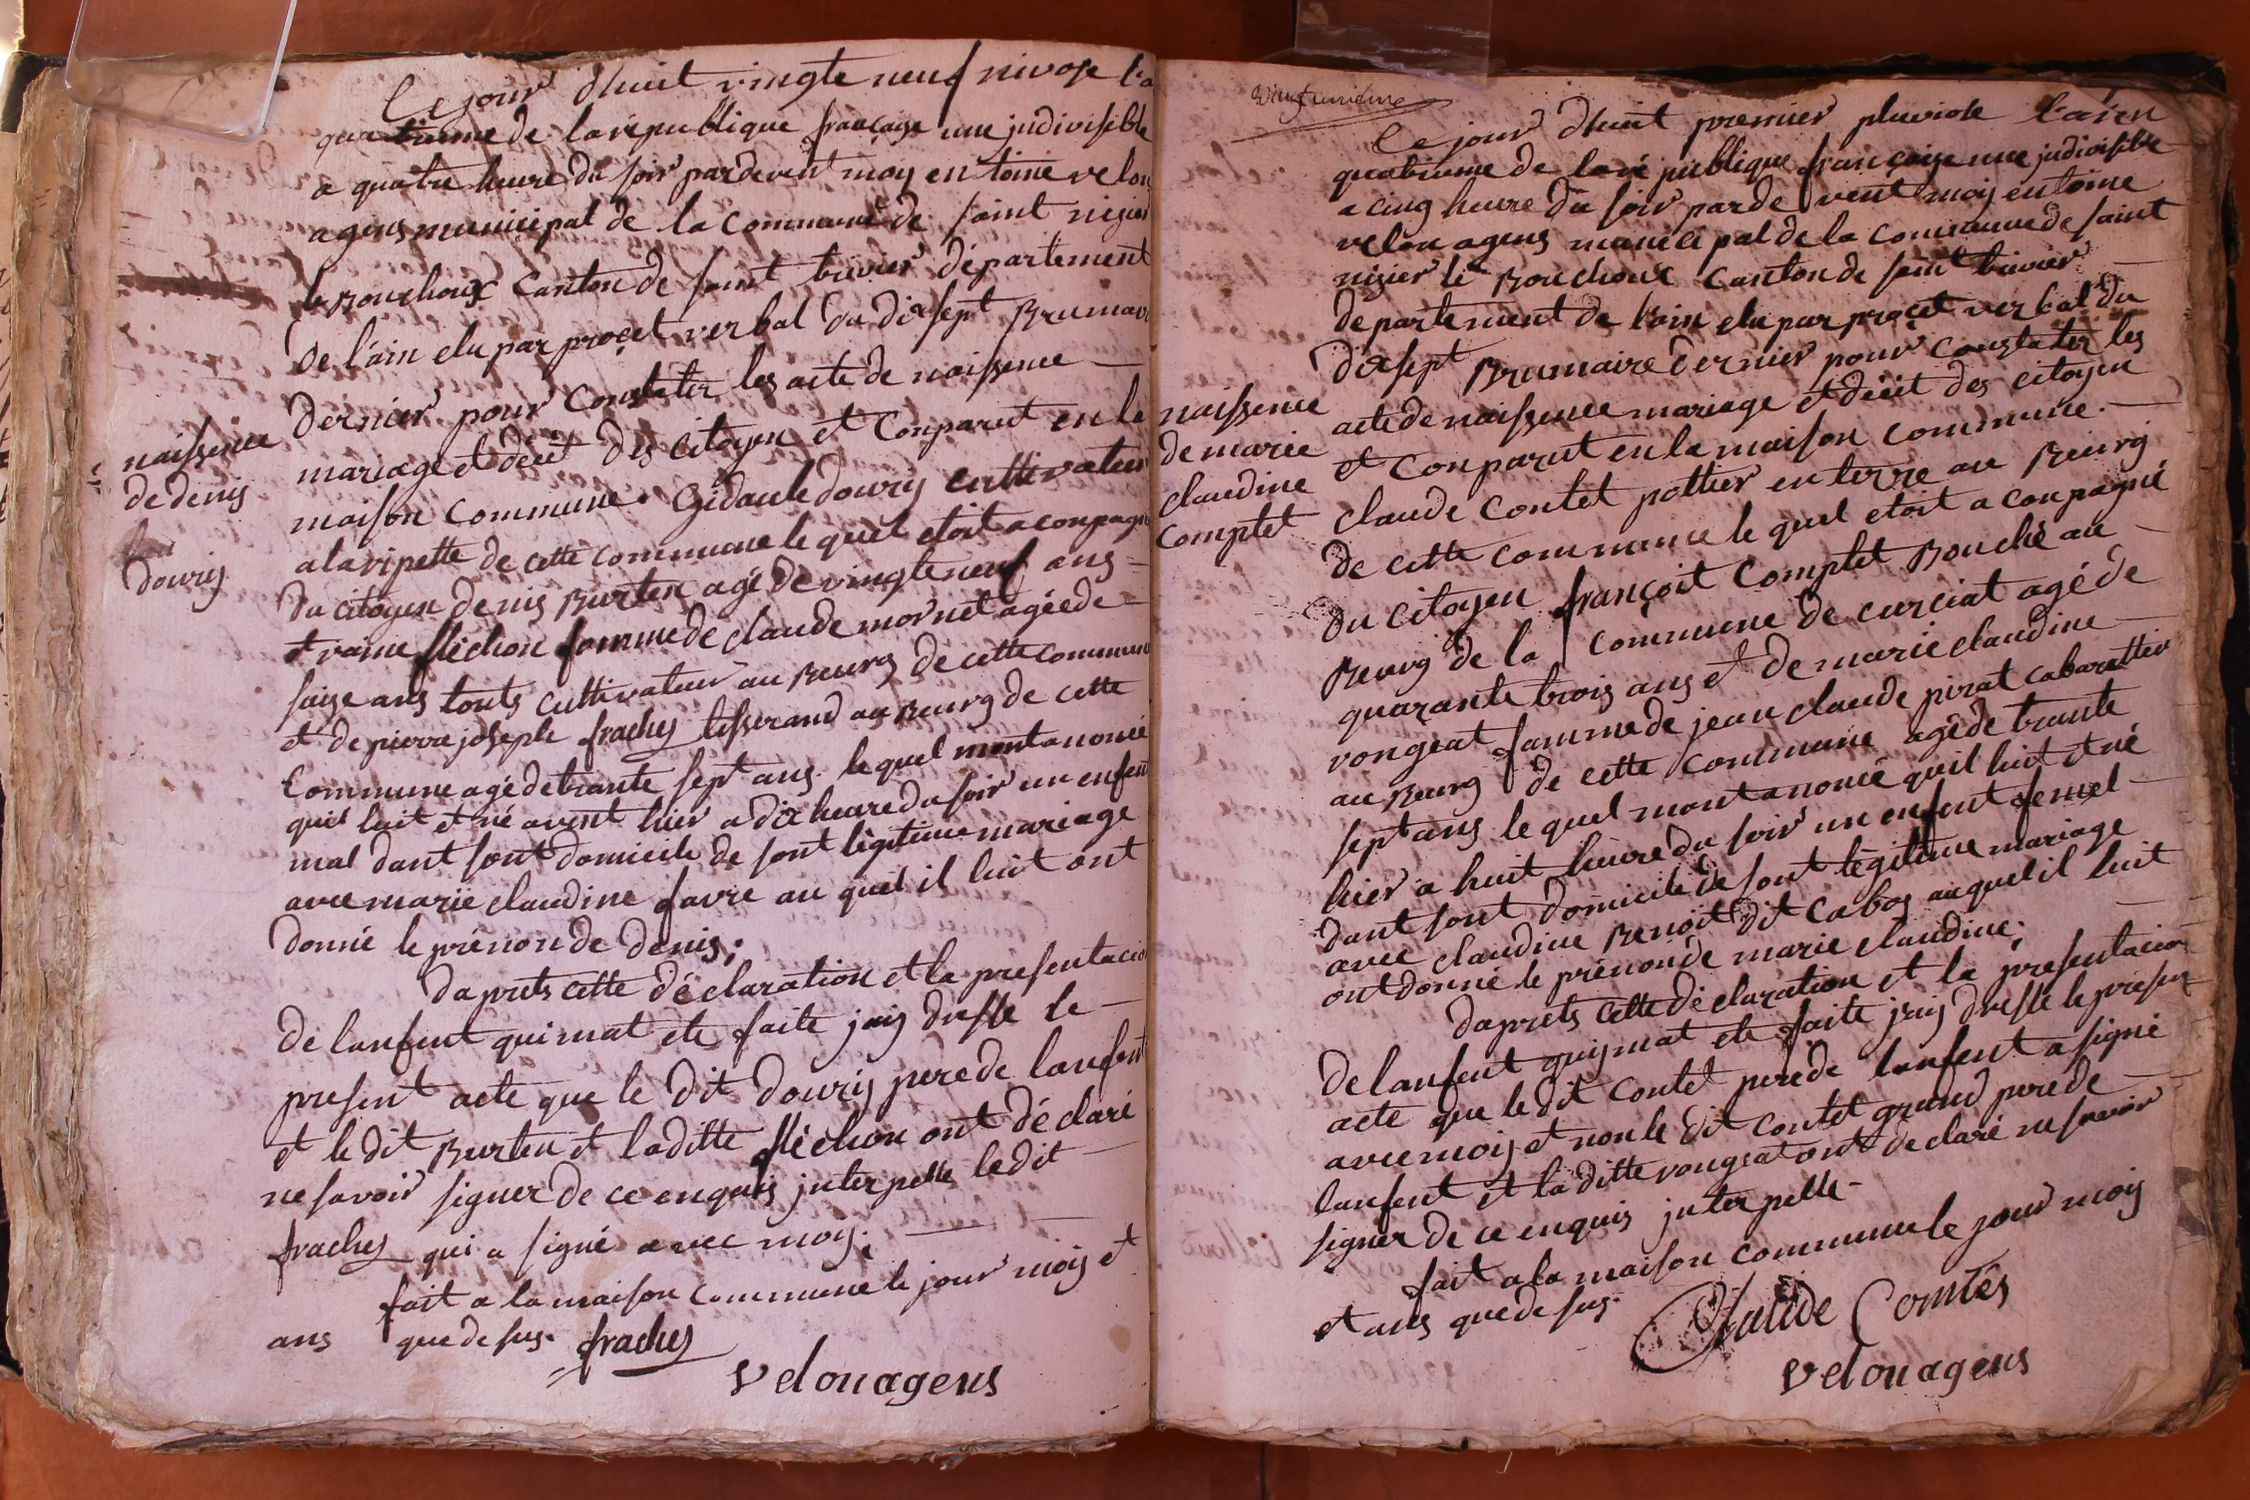 Ce jour dhuit vingte neuf nivose l'a
quatrieme de la republique française une jndivisible
a quatre heure du soir pardevent moy entoine velon
agens municipal de la commune de saint nizier
le Bouchoux Canton de saint trivier département
de l'ain elu par procet verbal du dixsept Brumair
dernier pour Constater les acte de naissence
mariage et décét des citoyen et Conparut en la
maison Commune. Gidaule douris cultivateur
a la ripette de cette commune le quel etoit a conpagn
naissence
de denis
douris
du citoyen denis Burten agé de vingteneuf ans
et raine flichon famme de claude mornet agéede
saize ans touts cultivateur au Bourg de cette commun
et de pierre joseph frachey tisserand au Bourg de cette
Commune agé detrante sept ans. le quel mont anoncé
quil luit et né avent hier a dix heure du soir un enfent
mal dant sont domicile de sont légitime mariage
avec marie claudine favre au quel il luit ont
donné le prénon de denis;
daprets cette déclaration et la presentacio
de lanfent qui mat ete faite jaiy dresse le
present acte que le dit douris perede lanfent
et le dit Burten et laditte flichon ont déclaré
ne savoir signer de ce enquis jnterpelle ledit
frachey qui a signé avec moy;
fait a la maison commune le jour mois et
ans que de sus. frachey
velon agens
Ce jour dhuit premier pluviose l'an
quatrieme de la république française une jndivisible
a cinq heure du soir pardevent moy entoine
velon agens municipal de la commune de saint
nizier le Bouchoux Canton de saint trivier
departement de l'ain elu par procet verbal du
dixsept Brumaire dernier pour Constater les
acte de naissence mariage et décét des citoyen
et Conparut en la maison commune.
naissence
de marie
claudine
Comptet
claude Contet pottier en terre au Bourg
de cette commune le quel etoit a conpagné
du citoyen françoit Comptet Bouché au
Bourg de la commune de curciat agé de
quarante trois ans et de marie claudine
rongeat famme de jean claude pirat cabarettier
au Bourg de cette commune agéde trante
sept ans le quel mont anoncé quil luit et né
hier a huit heure du soir un enfent femel
dant sont domicile de sont légitime mariage
avec claudine Benoit dit cabos auquel il luit
ont donné le prénon de marie claudine;
daprets cette déclaration et la presentacion
de lanfent qui mat ete faite jaiy dresse le presen
acte que le dit contet perede lanfent a signé
avec moy et non le dit contet grand perede
lanfent et la ditte rongeat ont declaré ne savoir
signer de ce enquis jnterpelle
fait a la maison commune le jour mois
et ans que de sus.
Claude Comtes
velon agens